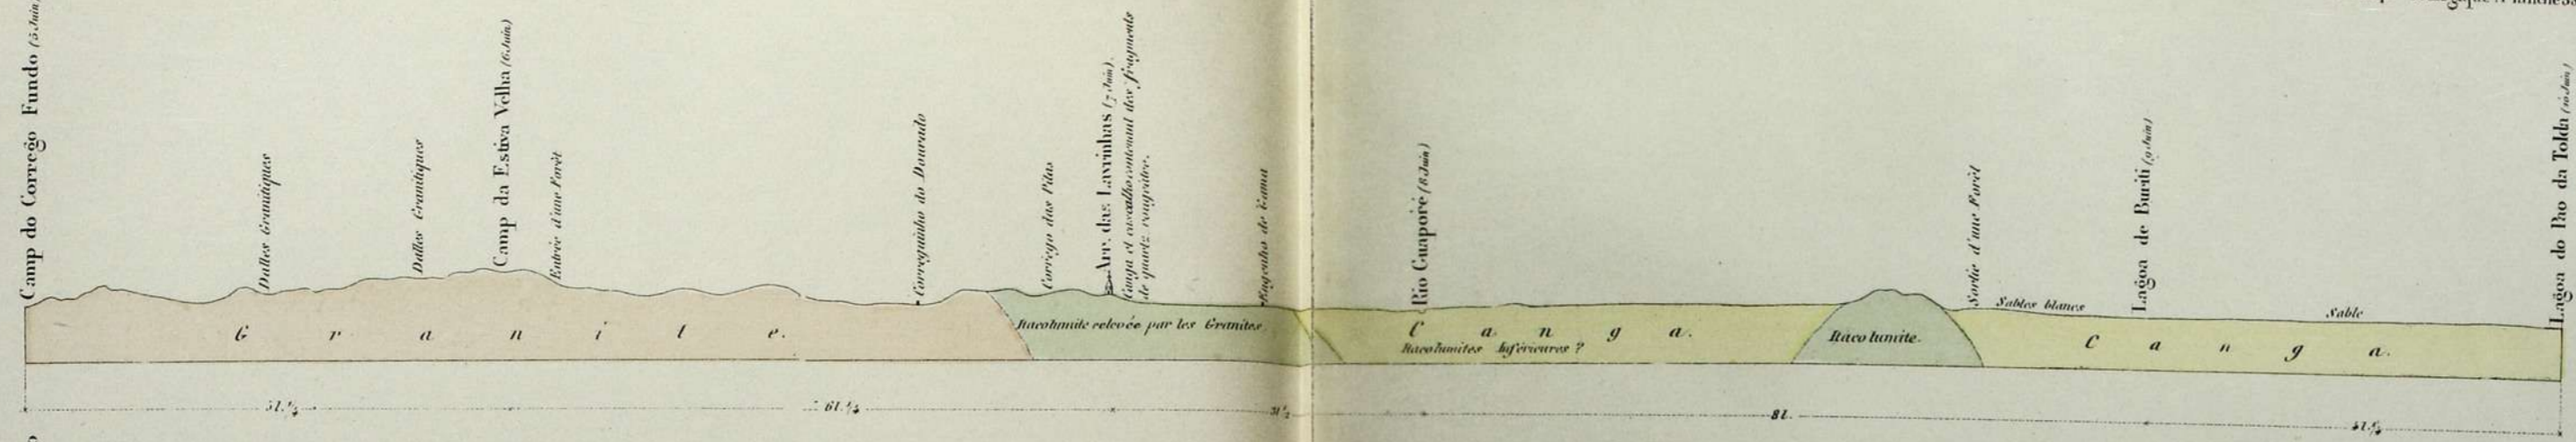 Camp do Corrego Fundo (5 Juin)
Dalles Granitiques
Dalles Granitiques
Camp da Estiva Velha (6 Juin)
Entrée d'une Forêt
Correguinho do Dourado
Corrego das Pitas
Arr. das Lavrinhas (7 Juin)
Canga et cascalho contenant des fragments
de quartz rougeâtre.
Engenho de Gama
Rio Guaporé (8 Juin)
Sortie d'une Forêt
Sables blancs
Lagoa de Buriti (9 Juin)
Sable
Lagoa do Pao da Tolda (10 Juin)
Granite.
Itacolumite relevée par les Granites
Canga.
Itacolumites Inférieures ?
Itacolumite.
Canga.
5l.½
6l.½
3l½
8l.